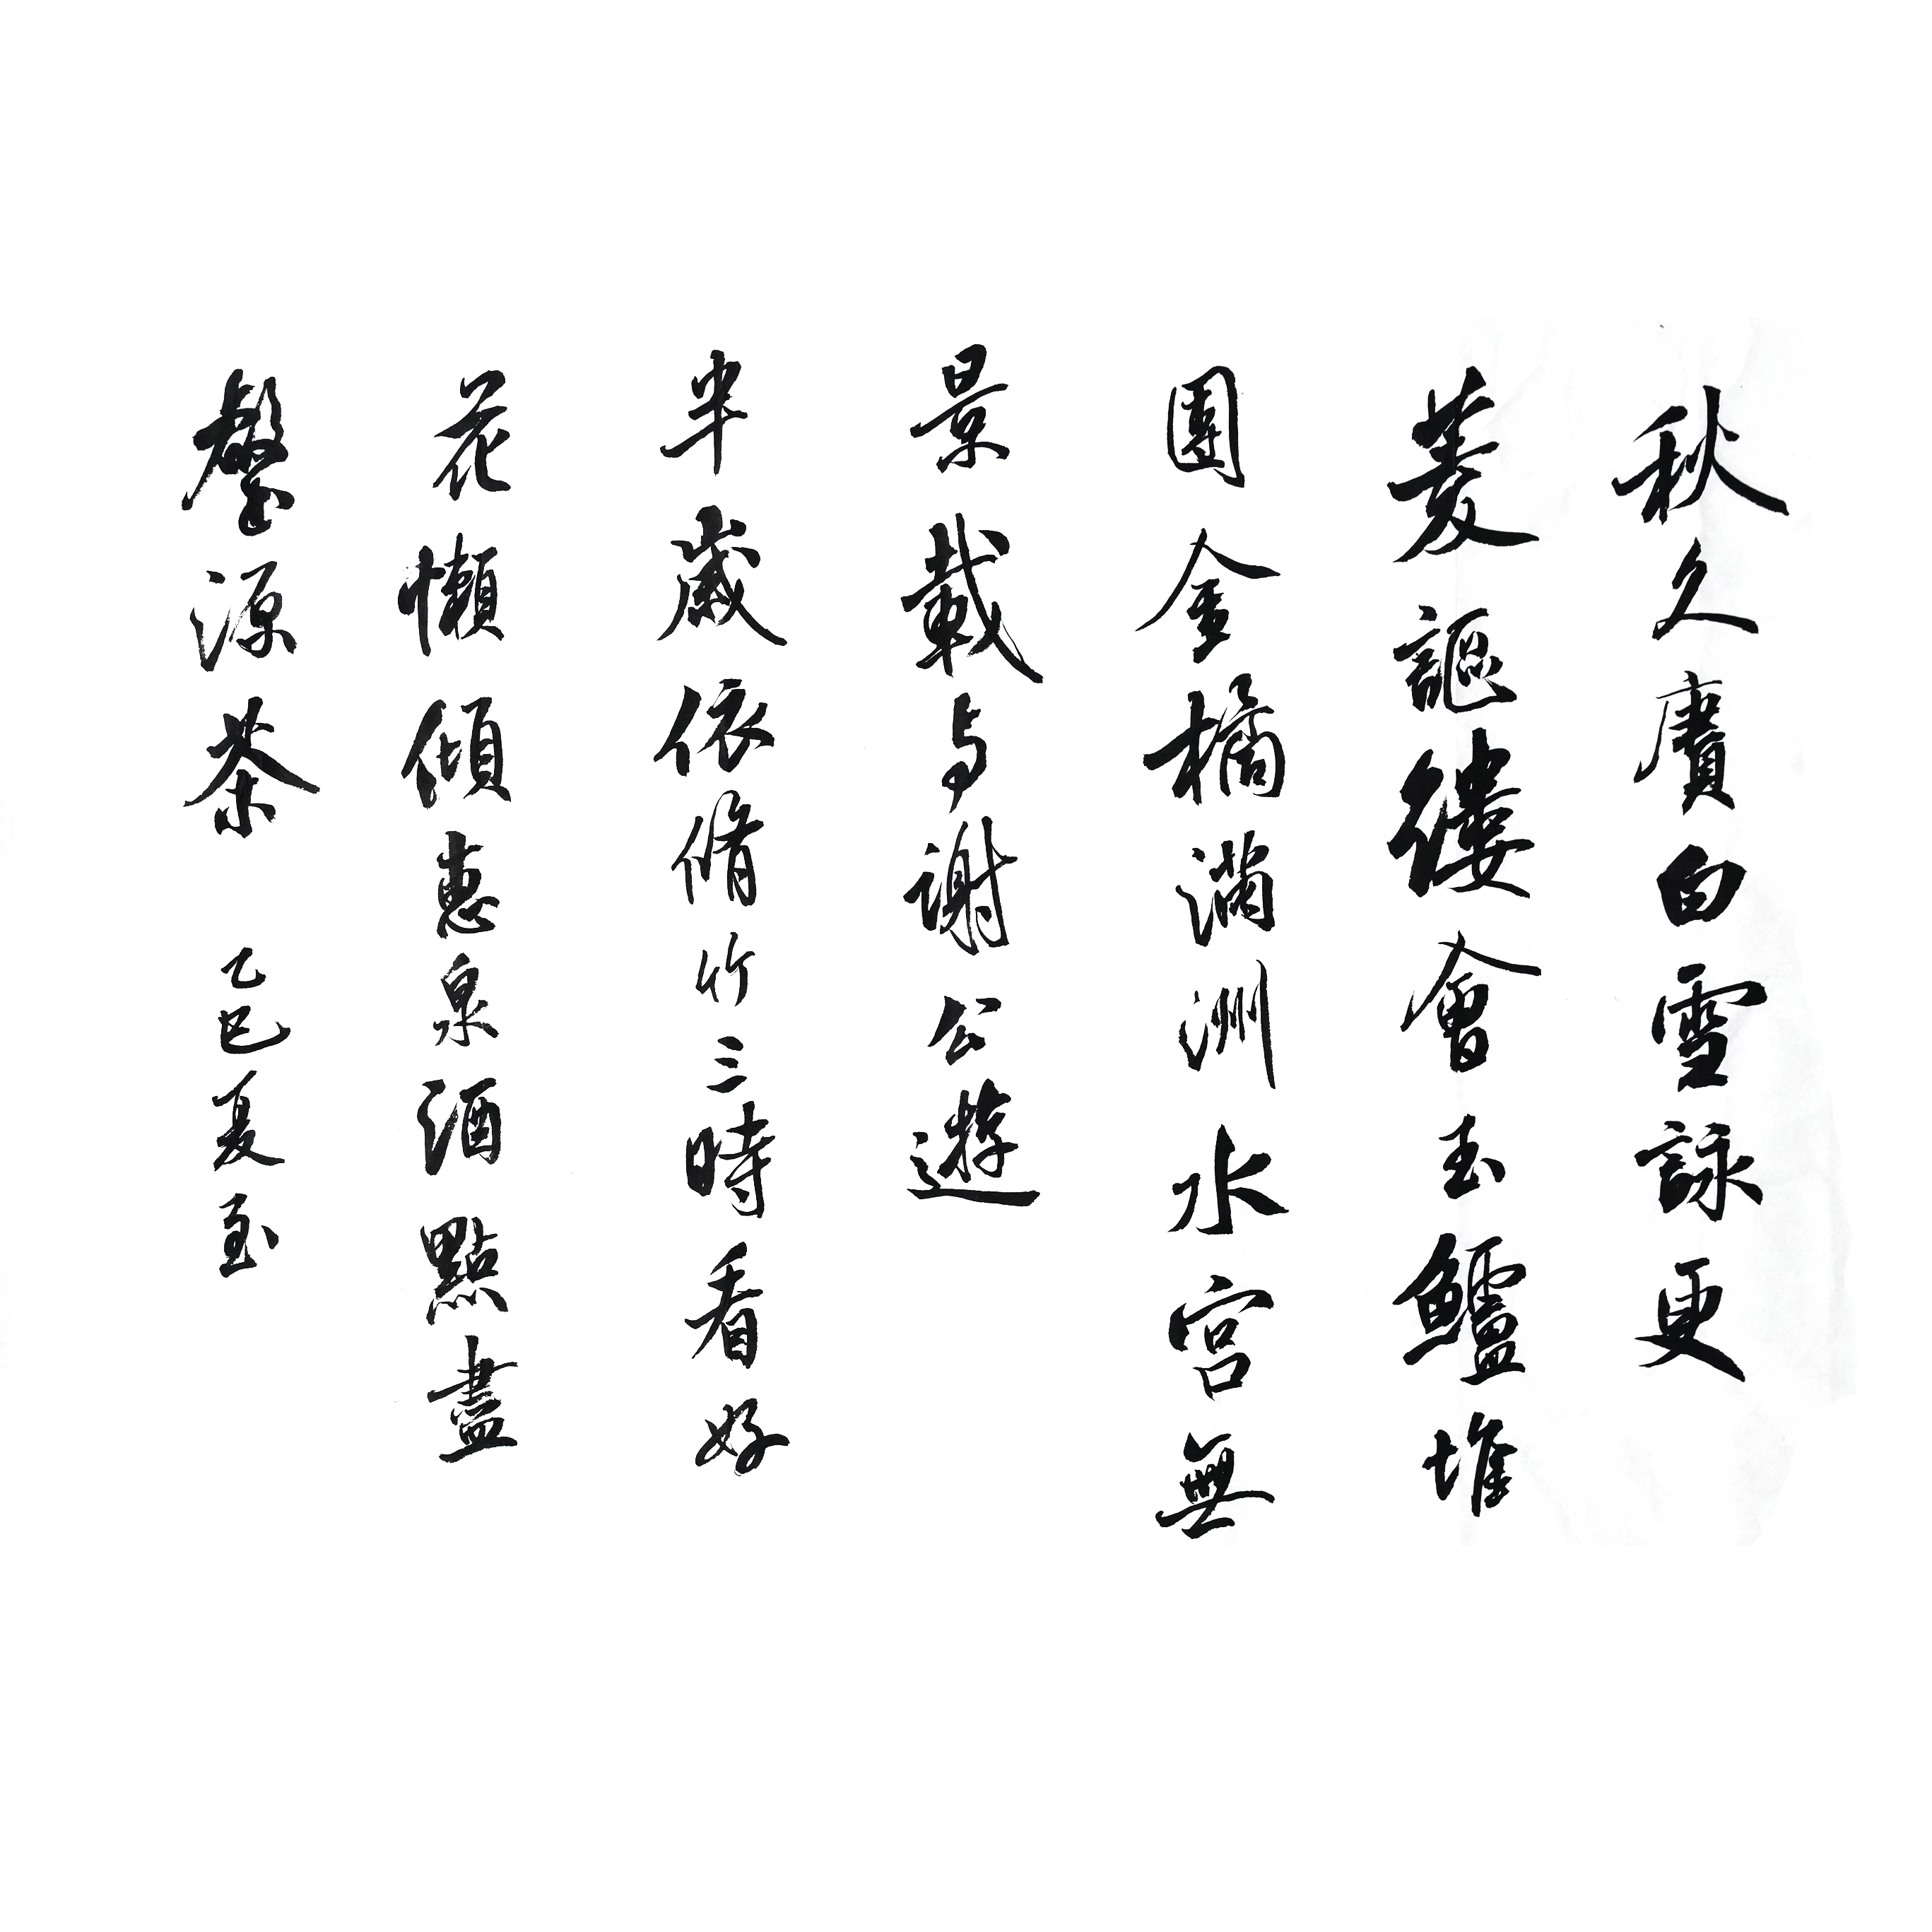 秋久賡白雪詠更
菱謳縷會玉鱸堆
團金橘滿洲水宮無
景載与謝公遊
半歲依脩竹三時看好
花懶傾惠泉酒點盡
壑源茶 乙巳夏至